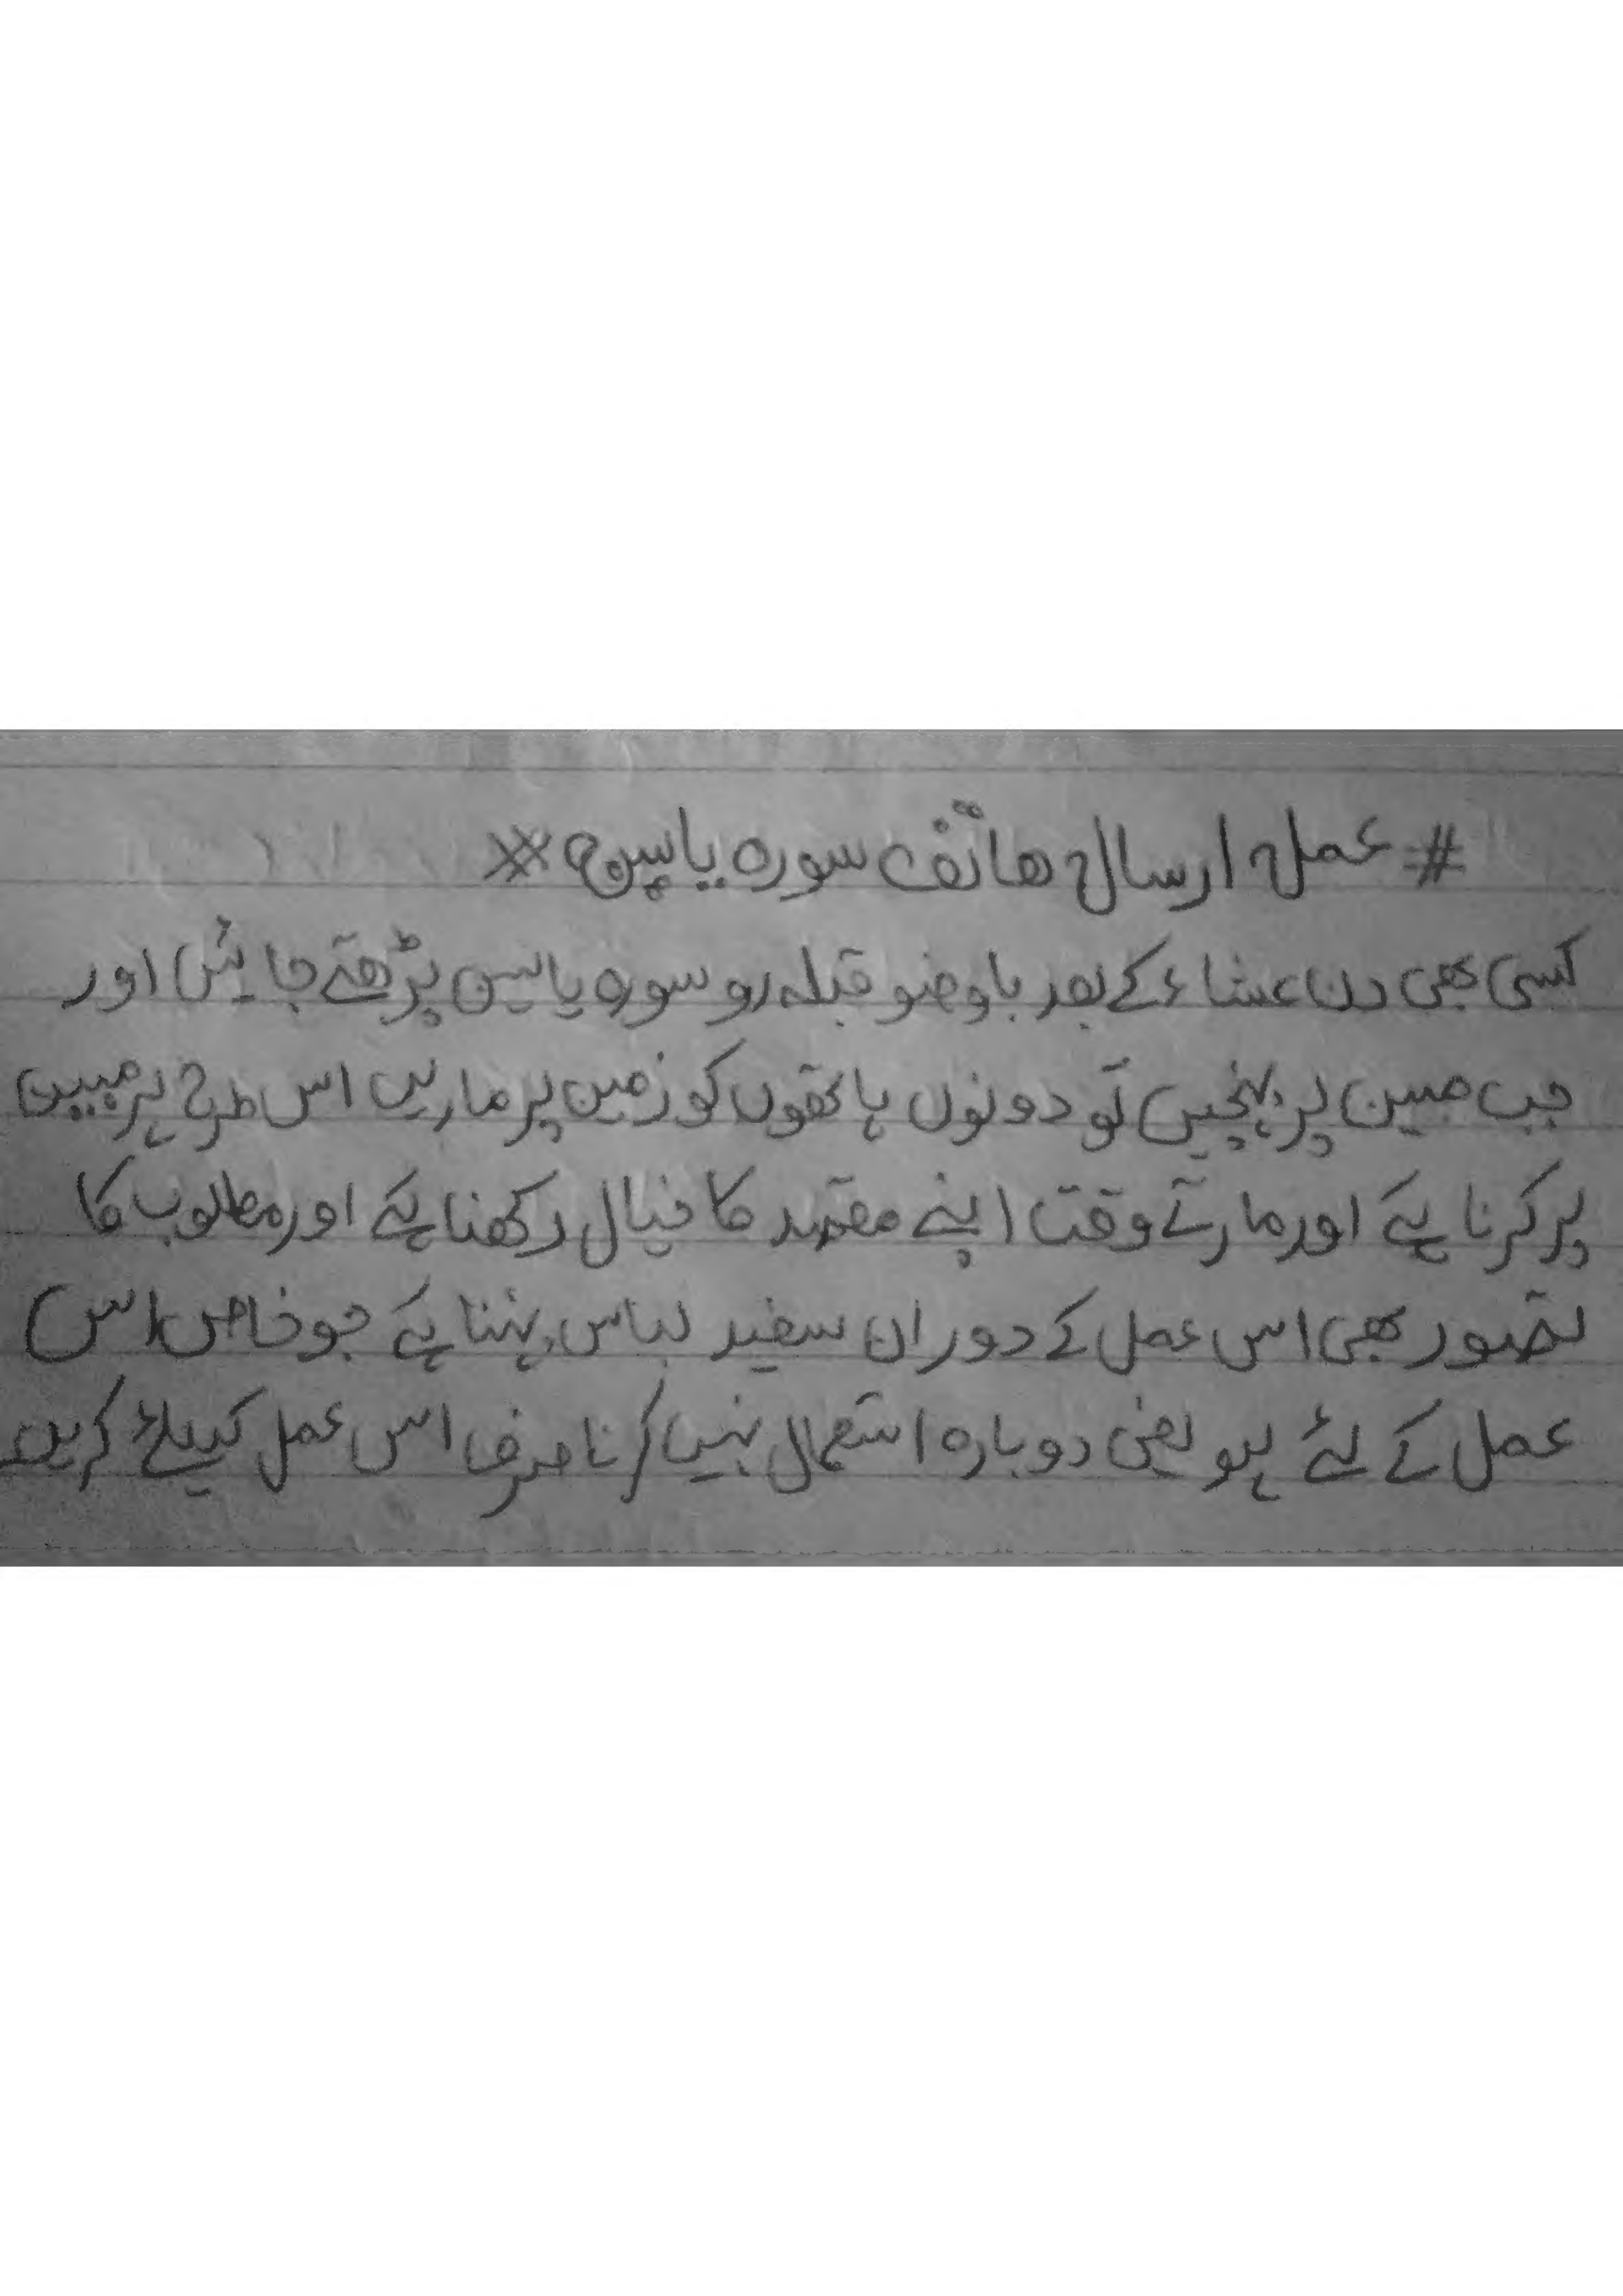 # عمل ارسال ھاتف سورہ یاسین #
کسی بھی دن عشاء کے بعد باوضو قبلہ رو سورہ یاسین پڑھتے جائیں اور
جب مبین پر پہنچیں تو دونوں ہاتھوں کو زمین پر ماریں اس طرح ہر مبین
پر کرنا ہے اور مارتے وقت اپنے مقصد کا خیال رکھنا ہے اور مطلوب کا
تصور بھی اس عمل کے دوران سفید لباس پہننا ہے جو خاص اس
عمل کے لئے ہو یعنی دوبارہ استعمال نہیں کرنا صرف اس عمل کیلئے کریں